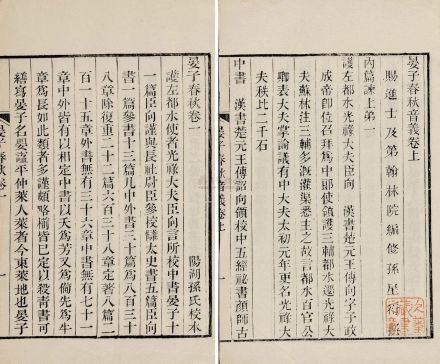 晏子春秋音義卷上
賜進士及第翰林院編修孫星衍撰
內篇諫上第一
護左都水光祿大夫臣向　漢書楚元王傳向字子政
成帝即位召拜爲中郎使領護三輔都水遷光祿大
夫蘇林注三輔多溉灌渠悉主之故言都水百官公
卿表大夫掌論議有中大夫太初元年更名光祿大
夫秩比二千石
中書　漢書楚元王傳詔向領校中五經祕書顏師古
晏子春秋音義卷上　一
晏子春秋卷一
陽湖孫氏校本
護左都水使者光祿大夫臣向言所校中書晏子十
一篇臣向謹與長社尉臣參校讎太史書五篇臣向
書一篇參書十三篇凡中外書三十篇爲八百三十
八章除復重二十二篇六百三十八章定著八篇二
百一十五章外書無有三十六章中書無有七十一
章中外皆有以相定中書以夭爲芳又爲備先爲牛
章爲長如此類者多謹頗略椾皆已定以殺青書可
繕寫晏子名嬰諡平仲萊人萊者今東萊地也晏子
晏子春秋卷一　一